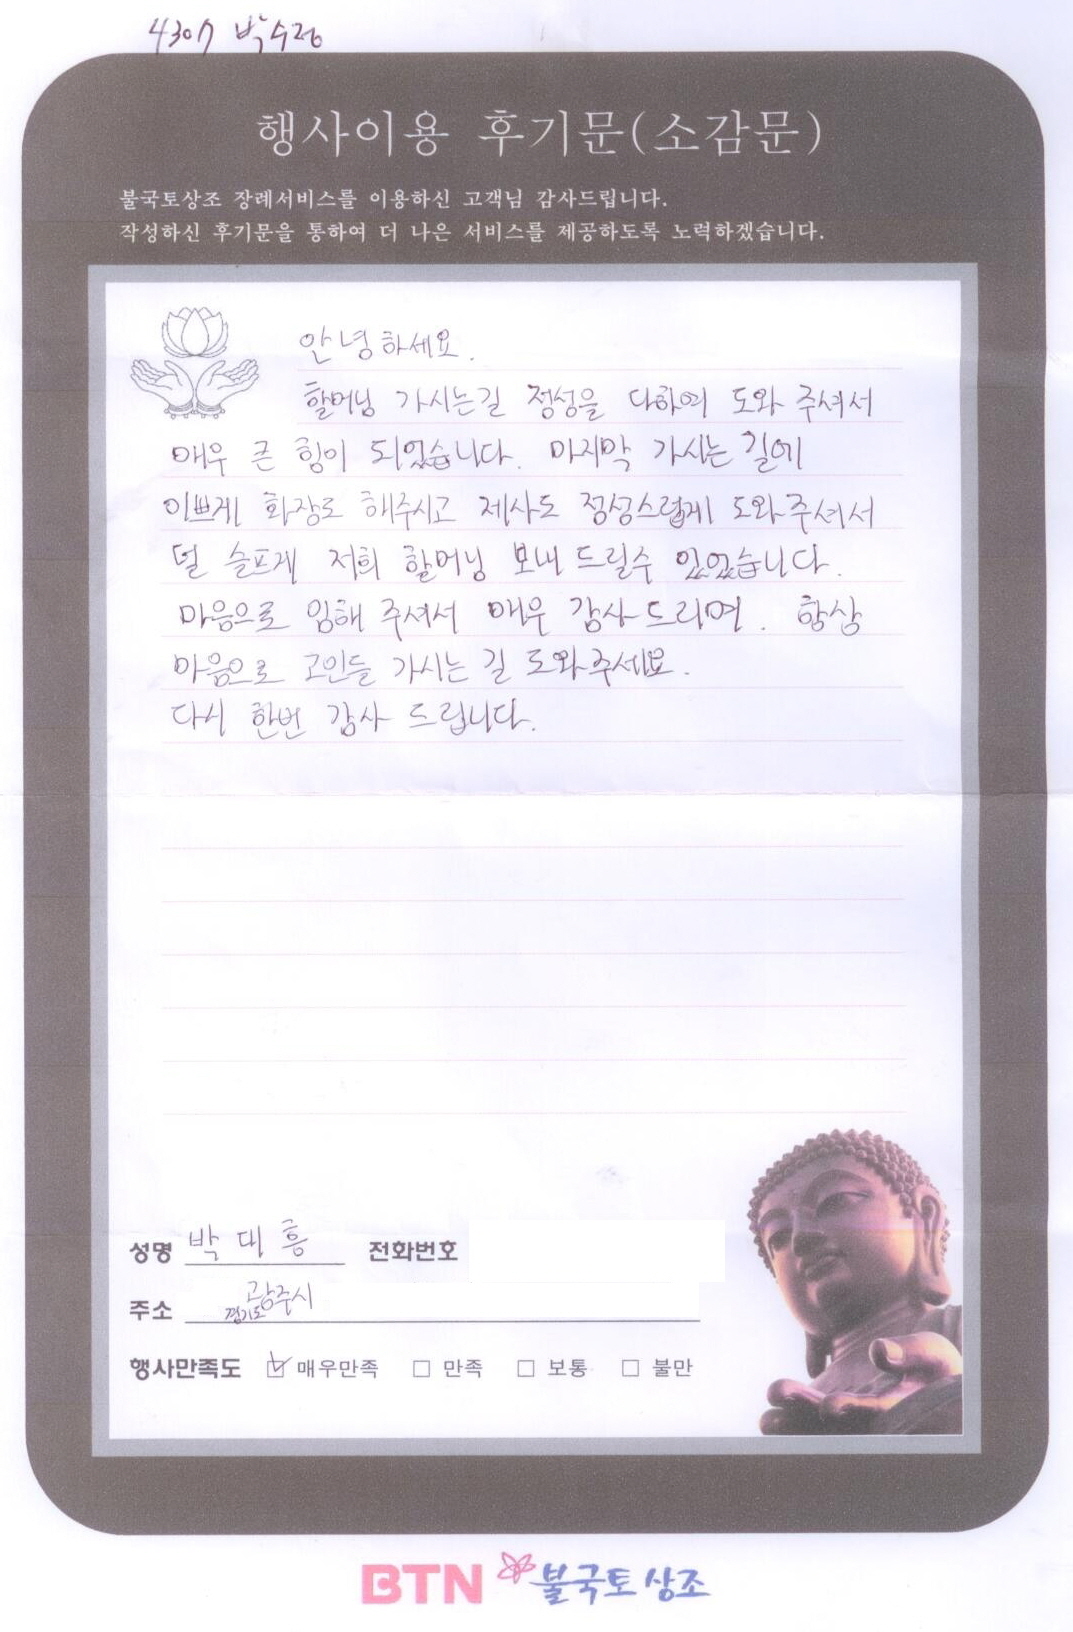 4307 박수정
행사이용 후기문(소감문)
불국토상조 장례서비스를 이용하신 고객님 감사드립니다.
작성하신 후기문을 통하여 더 나은 서비스를 제공하도록 노력하겠습니다.
안녕하세요.
할머님 가시는길 정성을 다하여 도와 주셔서
매우 큰 힘이 되었습니다. 마지막 가시는 길에
이쁘게 화장도 해주시고 제사도 정성스럽게 도와주셔서
덜 슬프게 저희 할머님 보내 드릴수 있었습니다.
마음으로 임해 주셔서 매우 감사드리며. 항상
마음으로 고인들 가시는 길 도와주세요.
다시 한번 감사 드립니다.
성명 박대흥 전화번호
주소 경기도 광주시
행사만족도 ☑ 매우만족 □ 만족 □ 보통 □ 불만
BTN 불국토상조